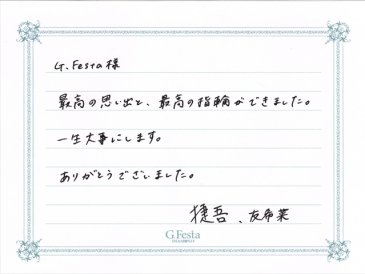 G.Festa様
最高の思い出と、最高の指輪ができました。
一生大事にします。
ありがとうございました。
捷吾、友希菜
G.Festa